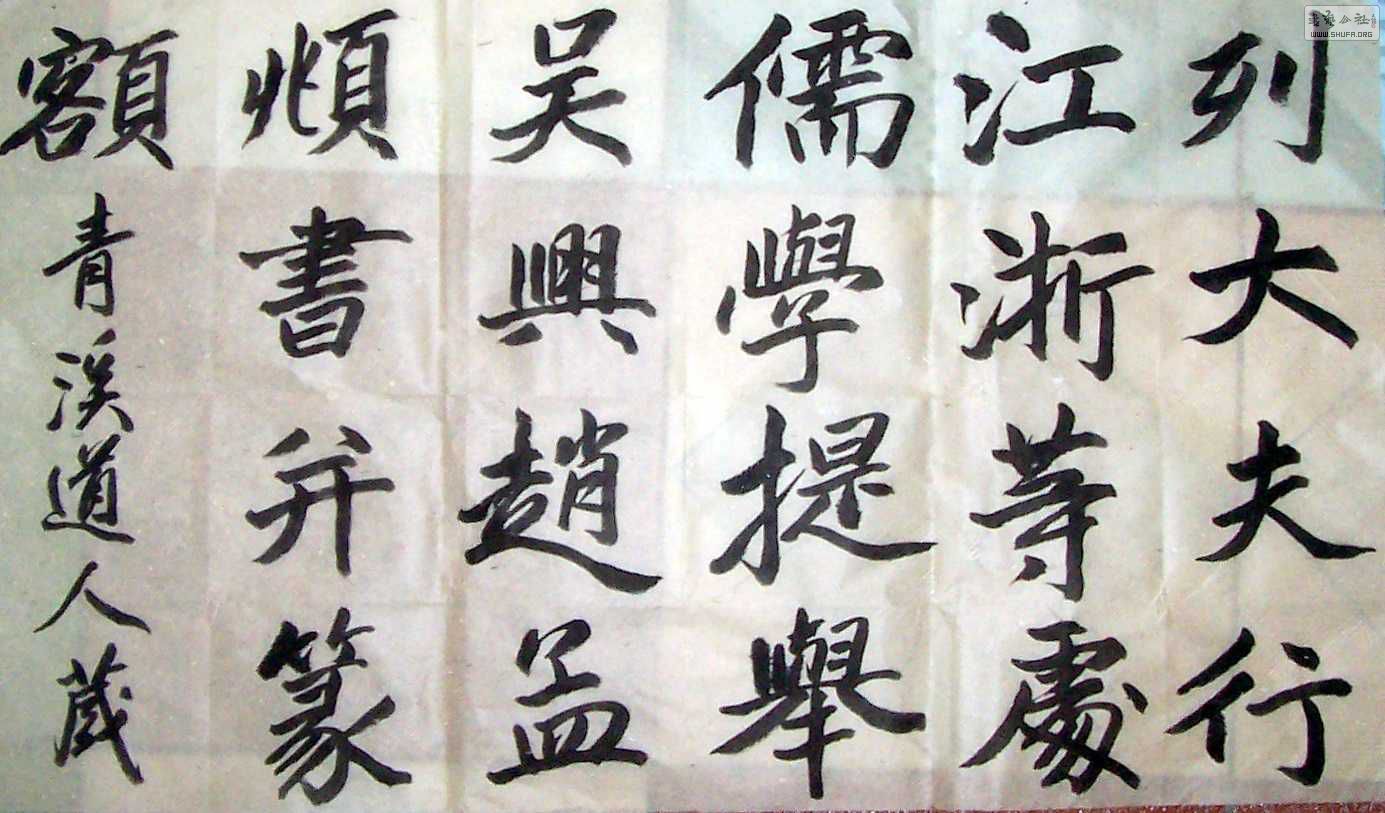 列大夫行
江浙等處
儒學提舉
吴興趙孟
頫書并篆
額
青溪道人蔵
書藝公社
WWW.SHUFA.ORG